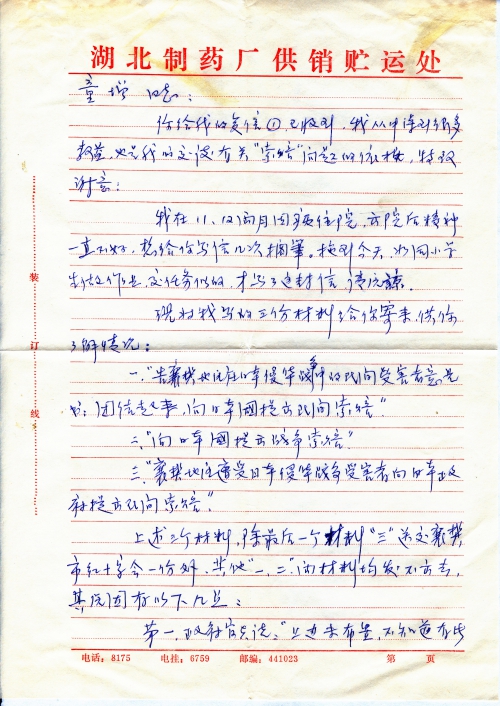 湖北制药厂供销贮运处
童增同志：
你给我的复信①已收到，我从中得到很多
教益，也是我的交谈有关"索赔"问题的依据，特致
谢意！
我在11、12两月因病住院，出院后精神
一直不好，想给你写信几次搁笔。拖到今天，如同小学
生做作业，交任务似的，才写了这封信，请原谅。
现将我写的三份材料给你寄来，供你
了解情况：
一、"告襄樊地区在日本侵华战争中的民间受害者意见
书：团结起来，向日本国提出民间索赔"
二、"向日本国提出战争索赔"
三、"襄樊地区遭受日本侵华战争受害者向日本政
府提出民间索赔"
上述三个材料，除最后一个材料"三"送交襄樊
市红十字会一份外，其他"一、二"两材料均发不出去，
其原因有以下几点：
第一、政府官员说："上边未布置，不知道有此
装
订
线
电话：8175 电挂：6759 邮编：441023 第 页